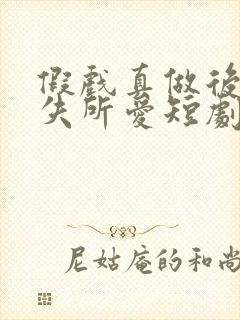 假戲真做後
失所愛短劇
尼姑庵的和尚